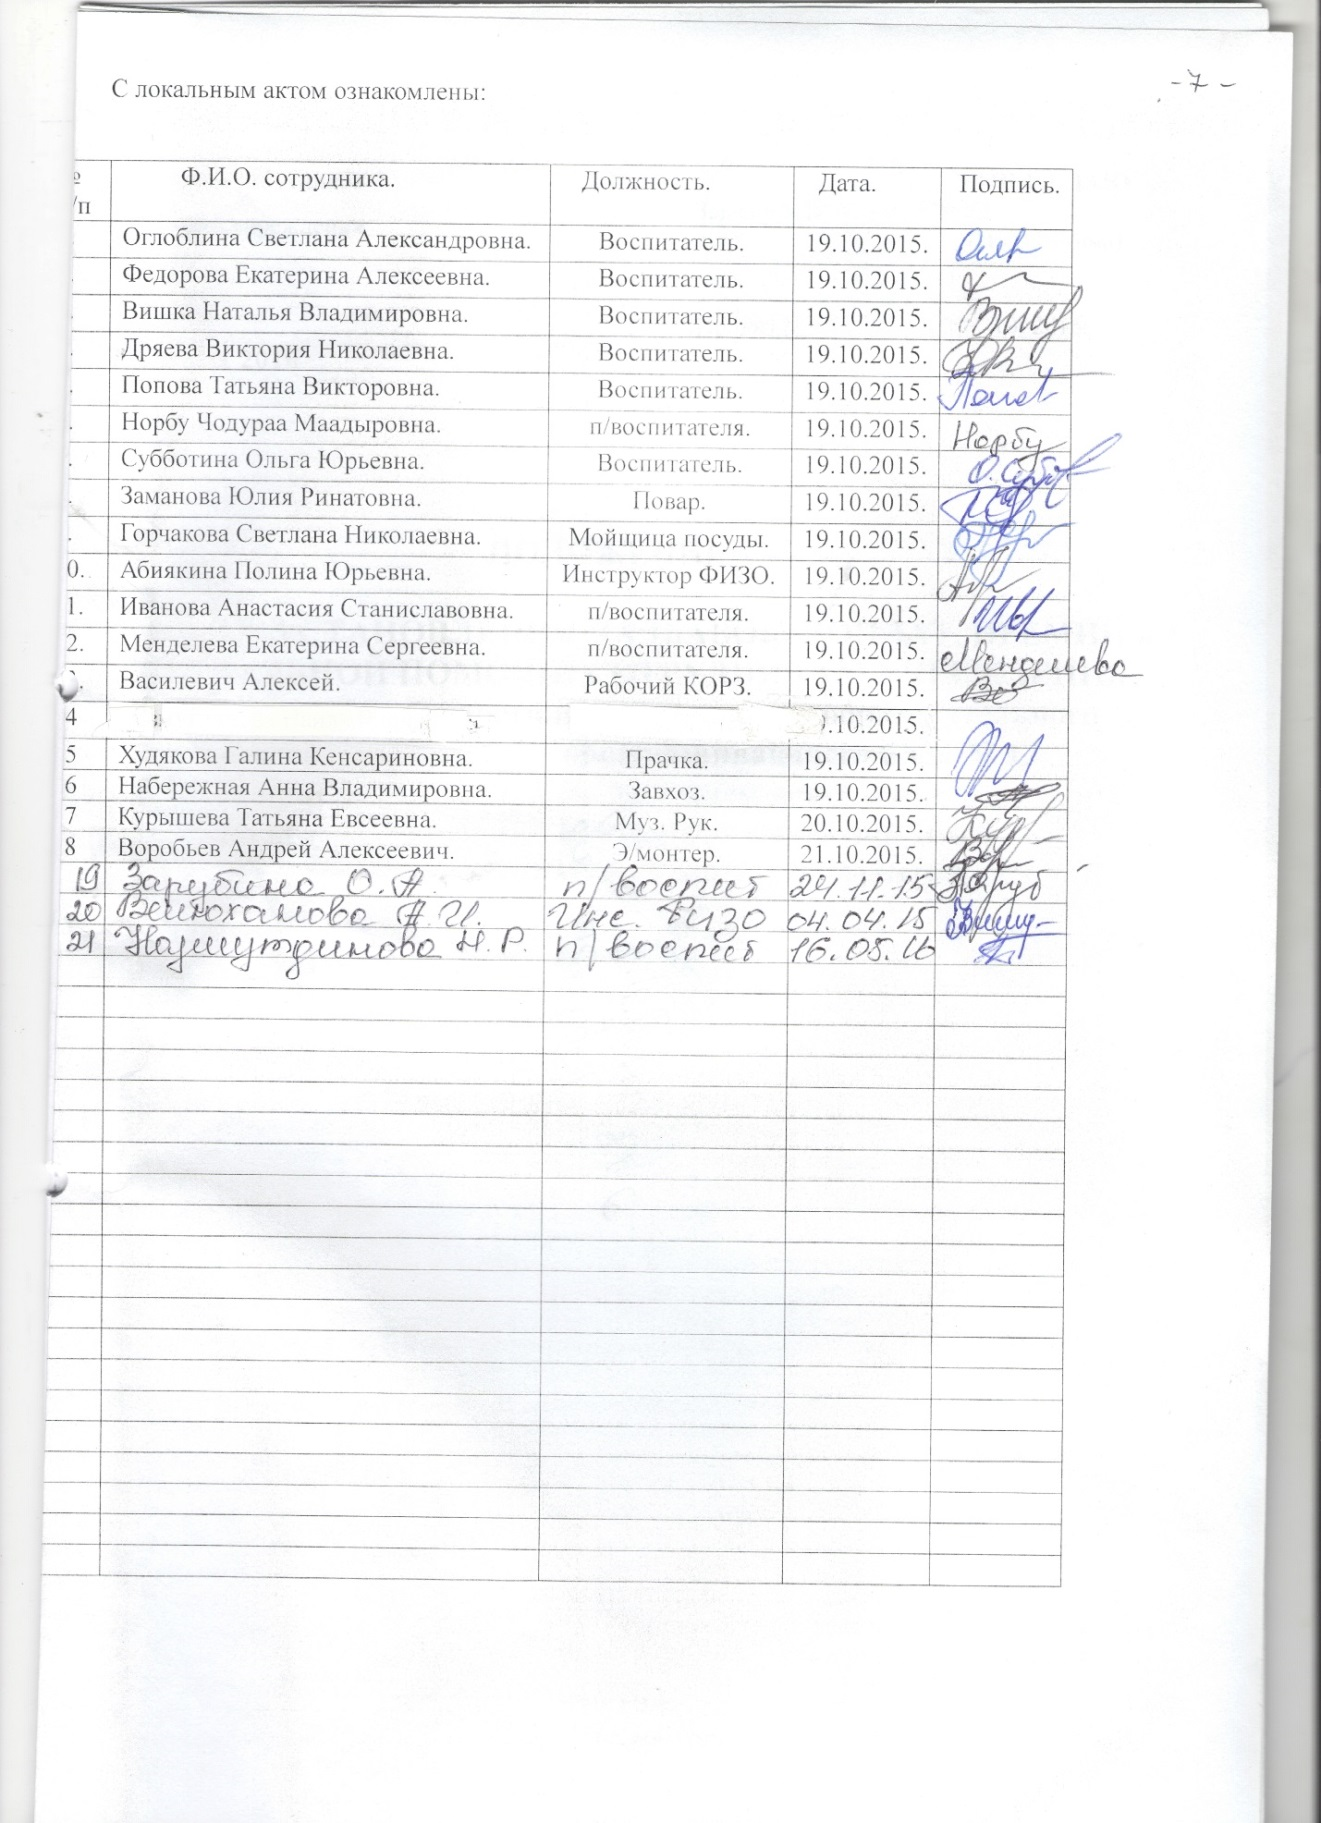 -7-
С локальным актом ознакомлены:
№ Ф.И.О. сотрудника. Должность. Дата. Подпись.
/п
Оглоблина Светлана Александровна. Воспитатель. 19.10.2015.
Федорова Екатерина Алексеевна. Воспитатель. 19.10.2015.
Вишка Наталья Владимировна. Воспитатель. 19.10.2015.
Дряева Виктория Николаевна. Воспитатель. 19.10.2015.
Попова Татьяна Викторовна. Воспитатель. 19.10.2015.
Норбу Чодураа Маадыровна. п/воспитателя. 19.10.2015. Норбу
Субботина Ольга Юрьевна. Воспитатель. 19.10.2015.
Заманова Юлия Ринатовна. Повар. 19.10.2015.
Горчакова Светлана Николаевна. Мойщица посуды. 19.10.2015.
0. Абиякина Полина Юрьевна. Инструктор ФИЗО. 19.10.2015.
1. Иванова Анастасия Станиславовна. п/воспитателя. 19.10.2015.
2. Менделева Екатерина Сергеевна. п/воспитателя. 19.10.2015. Менделева
Василевич Алексей. Рабочий КОРЗ. 19.10.2015.
4 9.10.2015.
5 Худякова Галина Кенсариновна. Прачка. 19.10.2015.
6 Набережная Анна Владимировна. Завхоз. 19.10.2015.
7 Курышева Татьяна Евсеевна. Муз. Рук. 20.10.2015.
8 Воробьев Андрей Алексеевич. Э/монтер. 21.10.2015.
19 Зарубина О.А. п/воспит 24.11.15 Заруб
20 А.И. Инс. Физо 04.04.15
21 Нажмутдинова Н.Р. п/воспит 16.05.16